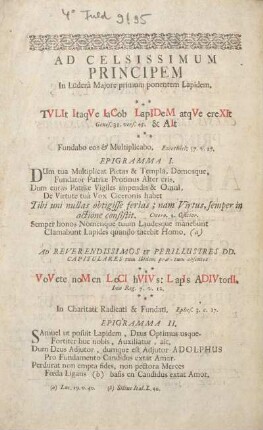 4° Juld 9195
AD CELSISSIMUM
PRINCIPEM
In Lüderä Majore primum ponentem Lapidem.
TVLIt ItaqVe IaCob LapIDeM atqVe ereXIt
Genes: 35. vers. 45. & AIt
Fundabo eos & Multiplicabo,
EPIGRAMMA I.
DUm tua Multiplicat Pietas & Templa, Domosque,
Fundator Patriæ Protinus Alter eris,
Dum curas Patriæ Vigiles impendis & Optas,
De Virtute tua Vox Ciceronis habet
Tibi uni nullas obtigisse ferias; nam Virtus semper in
actione consistit.
Semper honos Nomenque tuum Laudesque manebunt
Clamabunt Lapides quando tacebit Homo, (a)
AD REVERENDISSIMOS et PERILLUSTRES DD.
CAPITULARES
VoVete noMen LoCI hVIVs: LapIs ADIVtorII.
In Charitate Radicati & Fundati, Ephes. 3. v. 17.
EPIGRAMMA II.
SAmuel ut posuit Lapidem, Deus Optimus usque-
Fortiter huc nobis, Auxiliatur, ait,
Dum Deus Adjutor, dumque est Adjutor ADOLPHUS
Pro Fundamento Candidus extat Amor.
Perdurat non empta fides, non pectora Merces
Foeda Ligans (b) basis en Candidus extat Amor,
(a) Luc. 19. v. 40. (b) Silius Ital. L.